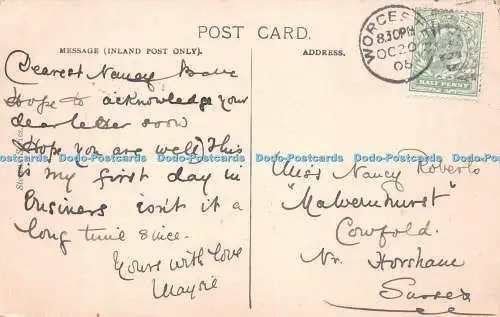 POST CARD.
MESSAGE (INLAND POST ONLY).
ADDRESS.
WORCESTER
8.30PM
OC 20
05
HALF PENNY
Dearest Nancy
Hope to acknowledge your
dear letter soon
Hope you are well) This
is my first day in
Business isn't it a
long time since.
Yours with love
Maysie
Miss Nancy Roberts
"Malvernhurst"
Cowfold.
Nr. Horsham
Sussex
Dodo-Postcards Dodo-Postcards Dodo-Postcards Dodo-Postcards Dodo-Postcards Dodo-Postcards